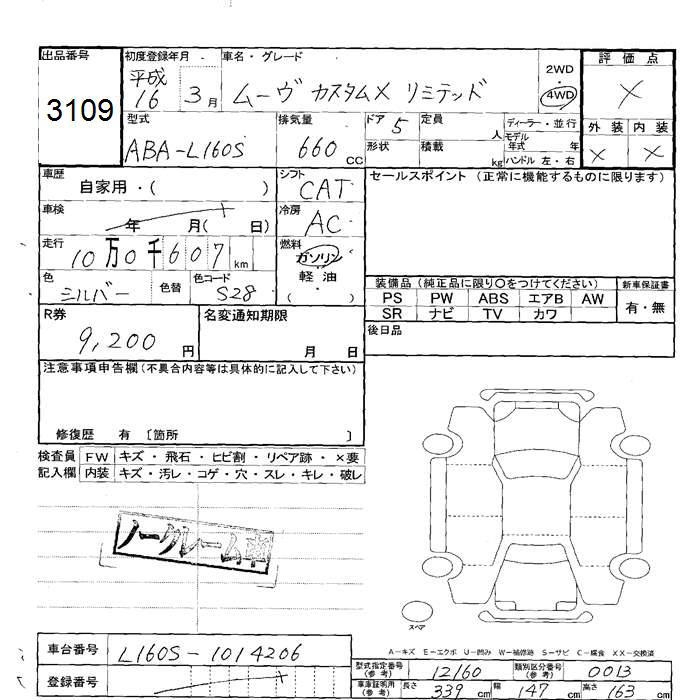 出品番号
3109
初度登録年月
平成
16 3月
車名・グレード
ムーヴ カスタムX リミテッド
2WD
・
4WD
評価点
×
外装 内装
× ×
型式
ABA-L160S
排気量
660 CC
ドア 5
形状
定員 人
積載 kg
ディーラー・並行
モデル
年式 年
ハンドル 左・右
車歴
自家用・( )
シフト
CAT
セールスポイント (正常に機能するものに限ります)
車検
年 月( 日)
冷房
AC
走行
10万0千607km
燃料
ガソリン
軽油
( ・ )
色
シルバー
色替
色コード
S28
装備品 (純正品に限り○をつけてください)
新車保証書
PS PW ABS エアB AW
有・無
SR ナビ TV カワ
R券
9,200 円
名変通知期限
月 日
後日品
注意事項申告欄(不具合内容等は具体的に記入して下さい)
修復歴 有 〔箇所 〕
検査員 FW キズ・飛石・ヒビ割・リペア跡・×要
記入欄 内装 キズ・汚レ・コゲ・穴・スレ・キレ・破レ
ノークレーム車
スペア
A－キズ E－エクボ U－凹み W－補修跡 S－サビ C－腐食 XX－交換済
車台番号
L160S-1014206
登録番号
型式指定番号
(参考)
12160
類別区分番号
(参考)
0013
車庫証明用
(参考)
長さ 339 cm 幅 147 cm 高さ 163 cm